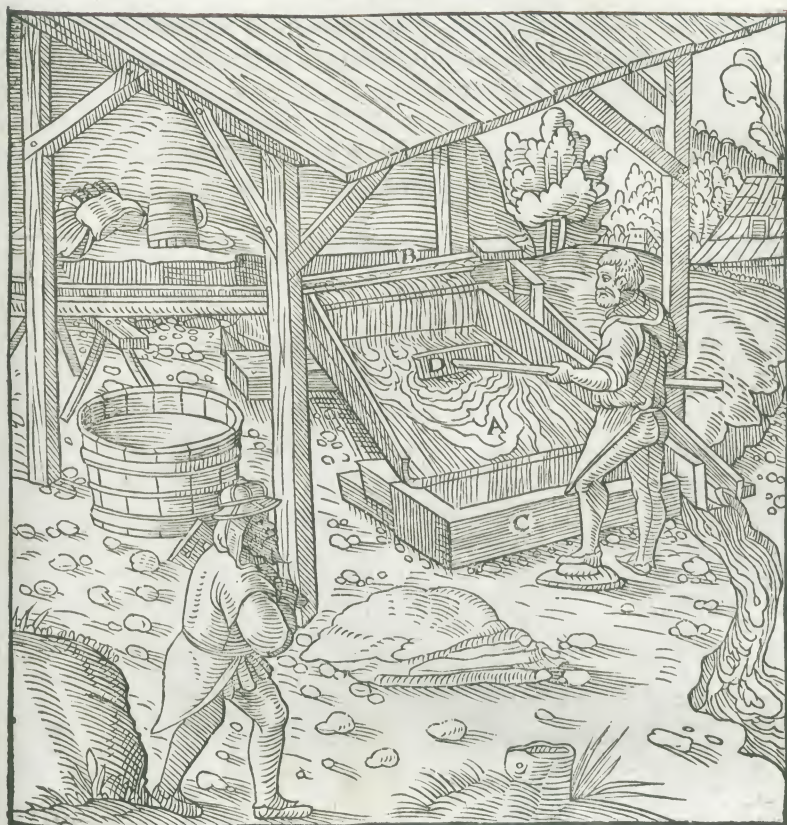 B
D
A
C